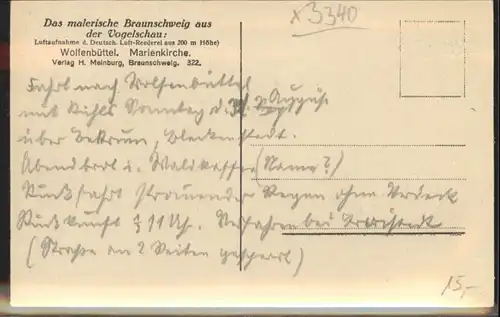 x3340
Das malerische Braunschweig aus
der Vogelschau:
Luftaufnahme d. Deutsch. Luft-Reederei aus 200 m Höhe)
Wolfenbüttel. Marienkirche.
Verlag H. Meinburg, Braunschweig. 322.
Fahrt nach Wolfenbüttel
mit Kühls Sonntag d. August
über Bleckenstedt.
Abendbrot i. Waldkaffee (Name?)
Rückfahrt strömender Regen ohne Verdeck
Rückkunft 11 Uhr. Verfahren bei
(Straße an 2 Seiten gesperrt)
15,-